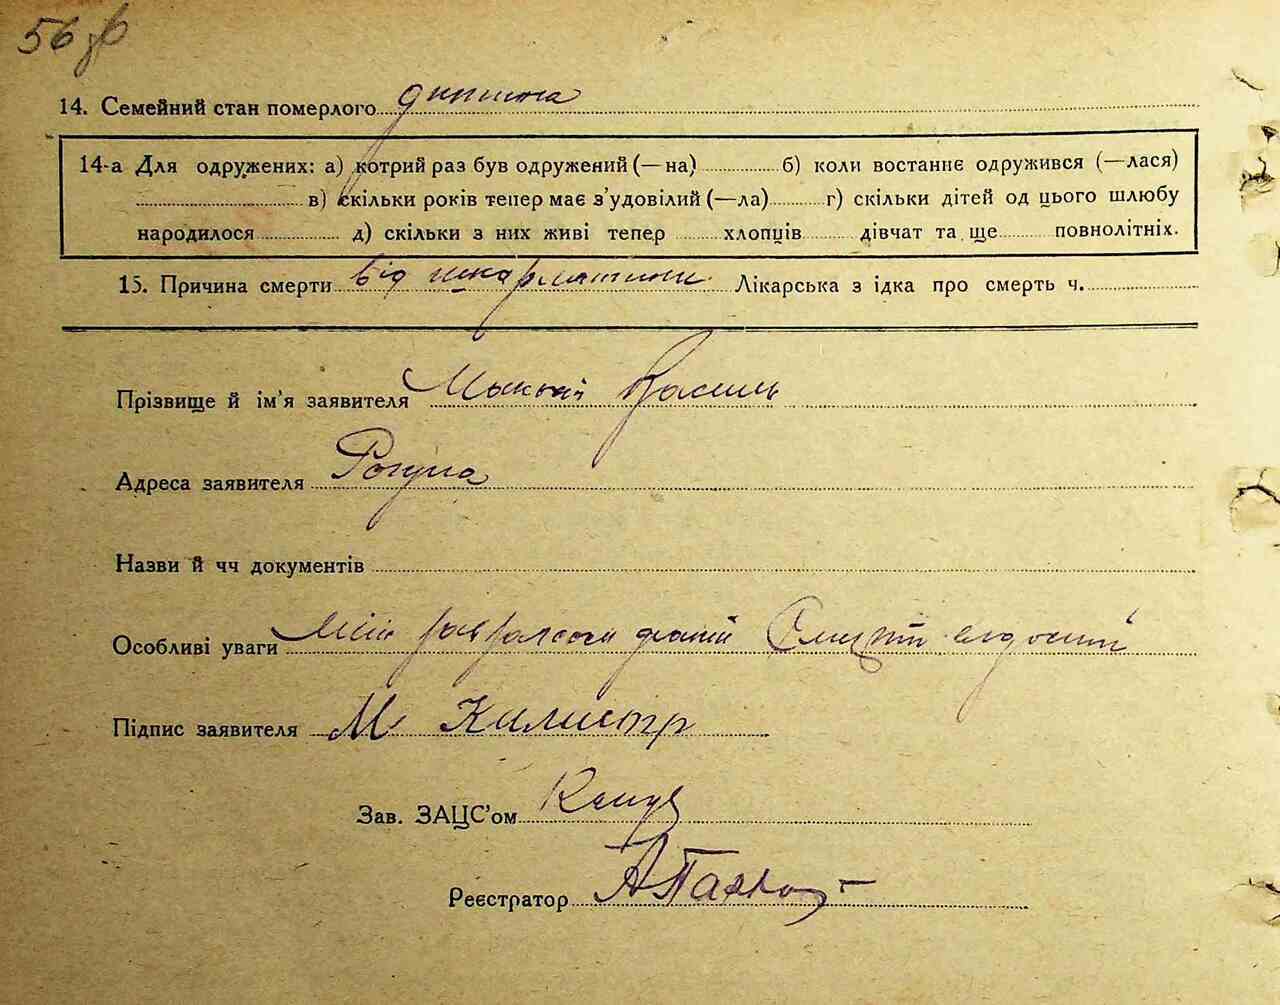 56 зв
14. Семейний стан померлого дитина
14-а Для одружених: а) котрий раз був одружений (—на) б) коли востаннє одружився (—лася)
в) скільки років тепер має з’удовілий (—ла) г) скільки дітей од цього шлюбу
народилося д) скільки з них живі тепер хлопців дівчат та ще повнолітніх.
15. Причина смерти від шкарлятини Лікарська з ідка про смерть ч.
Прізвище й ім’я заявителя Василь
Адреса заявителя
Назви й чч документів
Особливі уваги
Підпис заявителя М
Зав. ЗАЦС’ом
Реєстратор